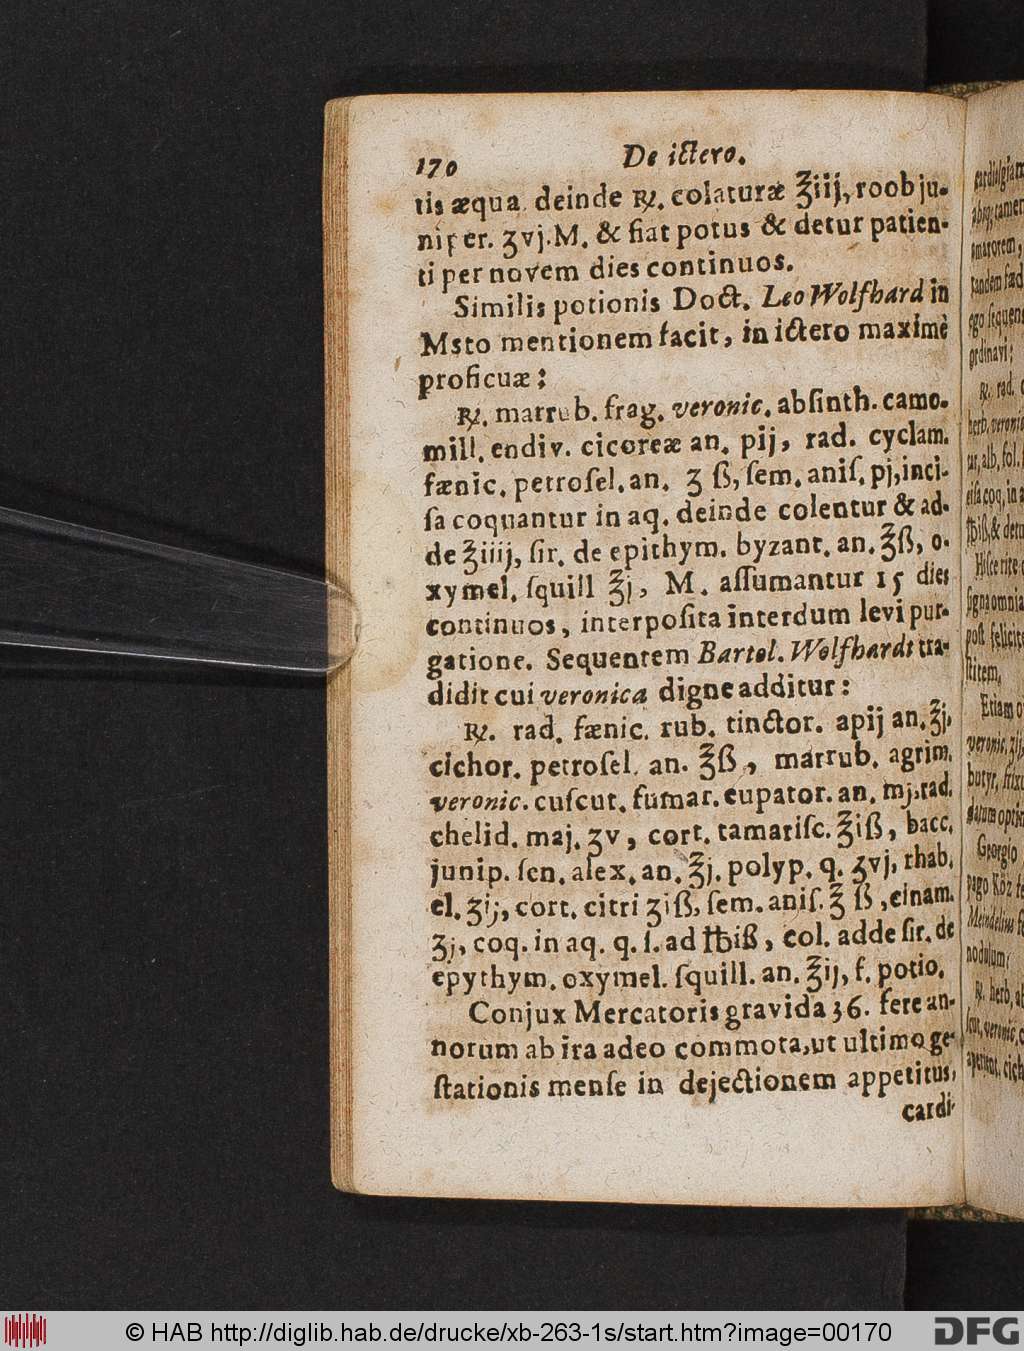 170 De ictero.
tis æqua. deinde ℞. colaturæ ℥iij, roob ju-
niper. ʒvj. M. & fiat potus & detur patien-
ti per novem dies continuos.
Similis potionis Doct. Leo Wolfhard in
Msto mentionem facit, in ictero maximè
proficuæ:
℞. marrub. frag. veronic. abſinth. camo-
mill. endiv. cicoreæ an. pij, rad. cyclam.
fænic. petroſel. an. ʒ ß, ſem. aniſ. pj, inci-
ſa coquantur in aq. deinde colentur & ad-
de ℥iiij, ſir. de epithym. byzant. an. ℥ß, o-
xymel. ſquill ℥j, M. aſſumantur 15 dies
continuos, interpoſita interdum levi pur-
gatione. Sequentem Bartol. Wolfhardt tra-
didit cui veronica digne additur:
℞. rad. fænic. rub. tinctor. apij an. ℥j,
cichor. petroſel. an. ℥ß, marrub. agrim.
veronic. cuſcut. fumar. eupator. an. mj. rad.
chelid. maj. ʒv, cort. tamariſc. ℥iß, bacc.
junip. ſen. alex. an. ℥j. polyp. q. ʒvj, rhab.
el. ʒij, cort. citri ʒiß, ſem. aniſ. ℥ ß, cinam.
ʒj, coq. in aq. q. ſ. ad ℔iß, col. adde ſir. de
epythym. oxymel. ſquill. an. ℥ij, f. potio.
Conjux Mercatoris gravida 36. fere an-
norum ab ira adeo commota, ut ultimo ge-
ſtationis menſe in dejectionem appetitus,
cardi-
ego ſequen
ordinavi;
℞. rad.
herb. veronic
tur, alb. fol.
℔iß, & detur
Hiſce rite
ſigna omnia
poſt felicite
ſtitem.
Etiam
veronic. ʒij,
butyr. frixi
Georgio
pago Köz
Meindelius
nodulum;
℞. herb. ab
© HAB http://diglib.hab.de/drucke/xb-263-1s/start.htm?image=00170
DFG